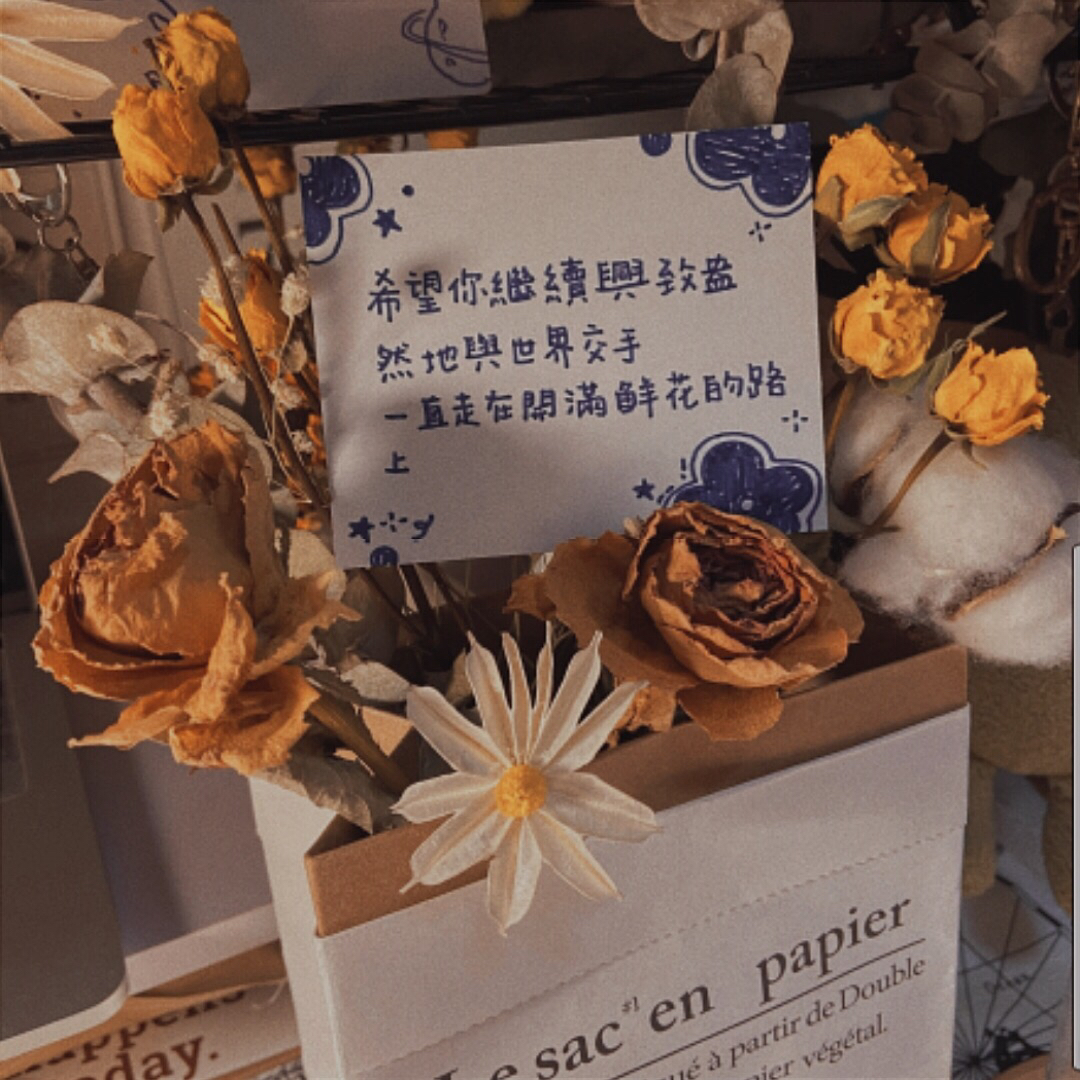 希望你繼續興致盎
然地與世界交手
一直走在開滿鮮花的路
上
Le sac*1 en papier
ué à partir de Double
pier végétal.
day.